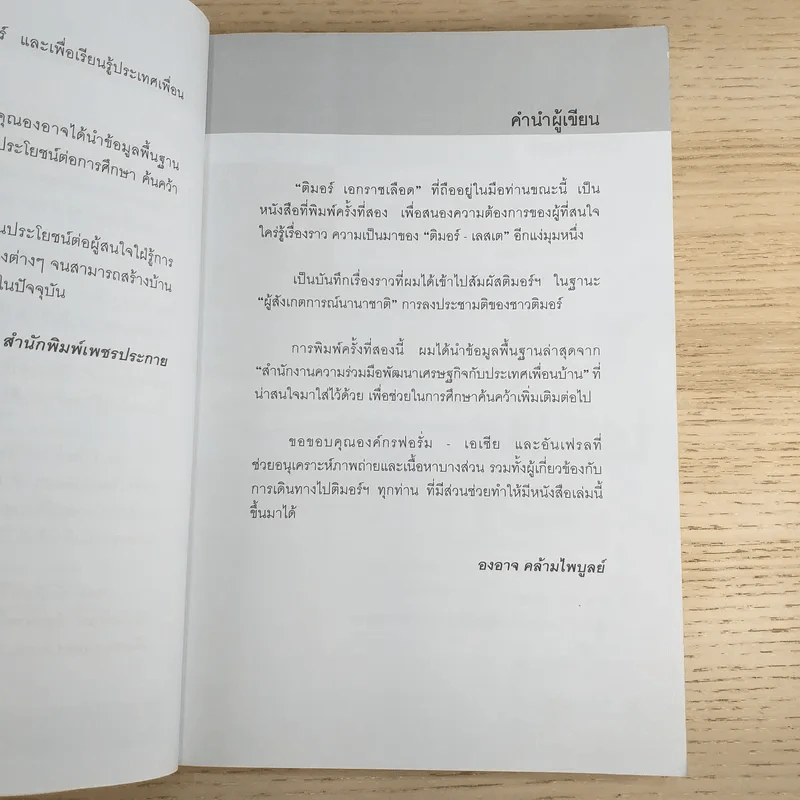 และเพื่อเรียนรู้ประเทศเพื่อน
คุณองอาจได้นำข้อมูลพื้นฐาน
ประโยชน์ต่อการศึกษา ค้นคว้า
ประโยชน์ต่อผู้สนใจใฝ่รู้การ
ต่างๆ จนสามารถสร้างบ้าน
ในปัจจุบัน
สำนักพิมพ์เพชรประกาย
คำนำผู้เขียน
“ติมอร์ เอกราชเลือด” ที่ถืออยู่ในมือท่านขณะนี้ เป็น
หนังสือที่พิมพ์ครั้งที่สอง เพื่อสนองความต้องการของผู้ที่สนใจ
ใคร่รู้เรื่องราว ความเป็นมาของ “ติมอร์ - เลสเต” อีกแง่มุมหนึ่ง
เป็นบันทึกเรื่องราวที่ผมได้เข้าไปสัมผัสติมอร์ฯ ในฐานะ
“ผู้สังเกตการณ์นานาชาติ” การลงประชามติของชาวติมอร์
การพิมพ์ครั้งที่สองนี้ ผมได้นำข้อมูลพื้นฐานล่าสุดจาก
“สำนักงานความร่วมมือพัฒนาเศรษฐกิจกับประเทศเพื่อนบ้าน” ที่
น่าสนใจมาใส่ไว้ด้วย เพื่อช่วยในการศึกษาค้นคว้าเพิ่มเติมต่อไป
ขอขอบคุณองค์กรฟอรั่ม - เอเซีย และอันเฟรลที่
ช่วยอนุเคราะห์ภาพถ่ายและเนื้อหาบางส่วน รวมทั้งผู้เกี่ยวข้องกับ
การเดินทางไปติมอร์ฯ ทุกท่าน ที่มีส่วนช่วยทำให้มีหนังสือเล่มนี้
ขึ้นมาได้
องอาจ คล้ามไพบูลย์